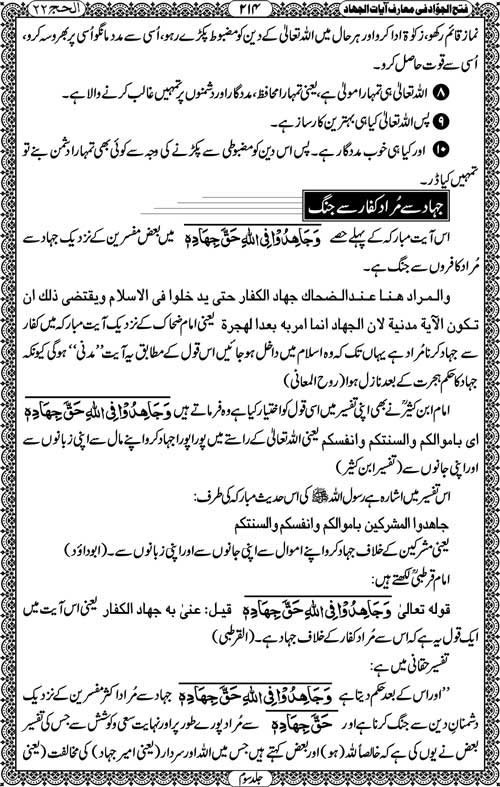 فتح الجوّاد فی معارف آیات الجہاد
۲۱۴
الحجّ ۲۲
نماز قائم رکھو، زکوٰۃ ادا کرو اور ہر حال میں اللہ تعالیٰ کے دین کو مضبوط پکڑے رہو، اُسی سے مدد مانگو اُسی پر بھروسہ کرو،
اُسی سے قوت حاصل کرو۔
۸ اللہ تعالیٰ ہی تمہارا مولیٰ ہے، یعنی تمہارا محافظ، مددگار اور دشمنوں پر تمہیں غالب کرنے والا ہے۔
۹ پس اللہ تعالیٰ کیا ہی بہترین کارساز ہے۔
۱۰ اور کیا ہی خوب مددگار ہے۔ پس اس دین کو مضبوطی سے پکڑنے کی وجہ سے کوئی بھی تمہارا دشمن بنے تو
تمہیں کیا ڈر۔
جہاد سے مُراد کفار سے جنگ
اس آیت مبارکہ کے پہلے حصے وَجَاهِدُوْا فِي اللّٰهِ حَقَّ جِهَادِهٖ میں بعض مفسرین کے نزدیک جہاد سے
مُراد کافروں سے جنگ ہے۔
والمراد هنا عند الضحاك جهاد الكفار حتى يدخلوا فى الاسلام ويقتضى ذلك ان
تكون الآية مدنية لان الجهاد انما امر به بعد الهجرة یعنی امام ضحاک کے نزدیک آیت مبارکہ میں کفار
سے جہاد کرنا مُراد ہے یہاں تک کہ وہ اسلام میں داخل ہو جائیں اس قول کے مطابق یہ آیت ’’مدنی‘‘ ہوگی کیونکہ
جہاد کا حکم ہجرت کے بعد نازل ہوا (روح المعانی)
امام ابن کثیرؒ نے بھی اپنی تفسیر میں اسی قول کو اختیار کیا ہے وہ فرماتے ہیں وَجَاهِدُوْا فِي اللّٰهِ حَقَّ جِهَادِهٖ
اى باموالكم والسنتكم وانفسكم یعنی اللہ تعالیٰ کے راستے میں پورا پورا جہاد کرو اپنے مال سے اپنی زبانوں سے
اور اپنی جانوں سے (تفسیر ابن کثیر)
اس تفسیر میں اشارہ ہے رسول اللہ ﷺ کی اس حدیث مبارکہ کی طرف:
جاهدوا المشركين باموالكم وانفسكم والسنتكم
یعنی مشرکین کے خلاف جہاد کرو اپنے اموال سے اپنی جانوں سے اور اپنی زبانوں سے۔ (ابوداؤد)
امام قرطبیؒ لکھتے ہیں:
قوله تعالىٰ وَجَاهِدُوْا فِي اللّٰهِ حَقَّ جِهَادِهٖ قيل: عنىٰ به جهاد الكفار یعنی اس آیت میں
ایک قول یہ ہے کہ اس سے مُراد کفار کے خلاف جہاد ہے۔ (القرطبی)
تفسیر حقانی میں ہے:
’’اور اس کے بعد حکم دیتا ہے وَجَاهِدُوْا فِي اللّٰهِ حَقَّ جِهَادِهٖ جہاد سے مُراد اکثر مفسرین کے نزدیک
دشمنانِ دین سے جنگ کرنا ہے اور حَقَّ جِهَادِهٖ سے مُراد پورے طور پر اور نہایت سعی و کوشش سے جس کی تفسیر
بعض نے یوں کی ہے کہ خالصاً للہ (ہو) اور بعض کہتے ہیں جس میں اللہ اور سردار (یعنی امیر جہاد) کی مخالفت (یعنی
جلد سوم